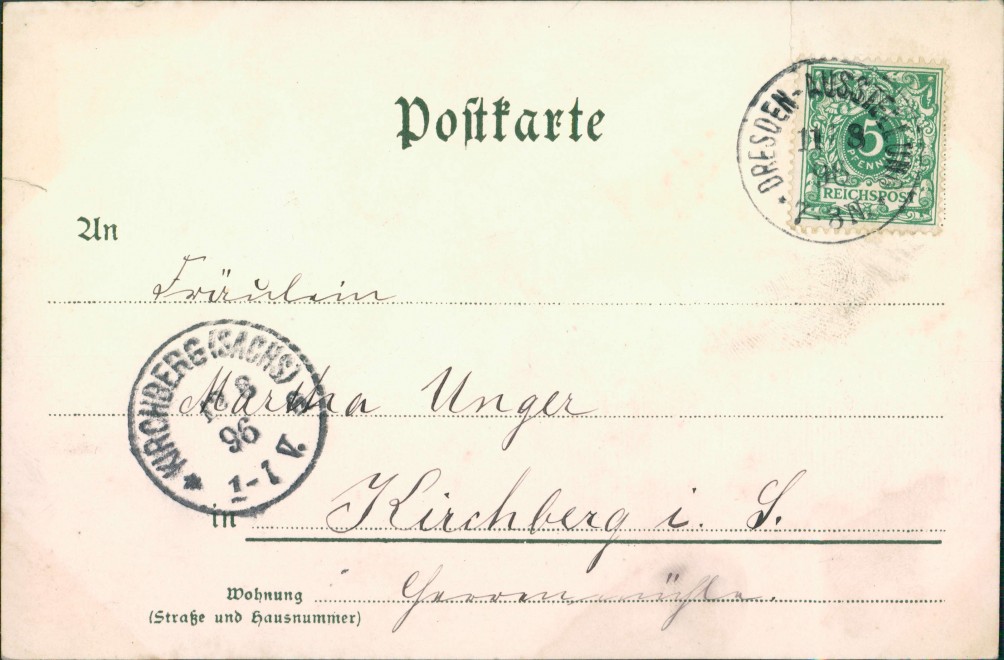 Postkarte
DRESDEN-AUSSTELLUNG
11 8
96
7-8 N.
5
PFENNIG
REICHSPOST
An
Fräulein
KIRCHBERG (SACHS)
8
96
V.
Martha Unger
in Kirchberg i. S.
Wohnung Herrenmühle.
(Straße und Hausnummer)